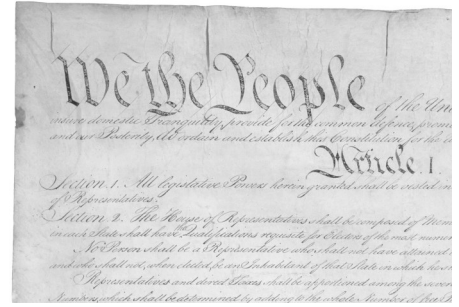 We the People of the Uni
insure domestic Tranquility, provide for the common defence, promo
and our Posterity, do ordain and establish this Constitution for the
Article. I
Section. 1. All legislative Powers herein granted shall be vested in
of Representatives.
Section. 2. The House of Representatives shall be composed of Mem
in each State shall have Qualifications requisite for Electors of the most numer
No Person shall be a Representative who shall not have attained
and who shall not, when elected, be an Inhabitant of that State in which he sha
Representatives and direct Taxes shall be apportioned among the seve
Numbers, which shall be determined by adding to the whole Number of free P